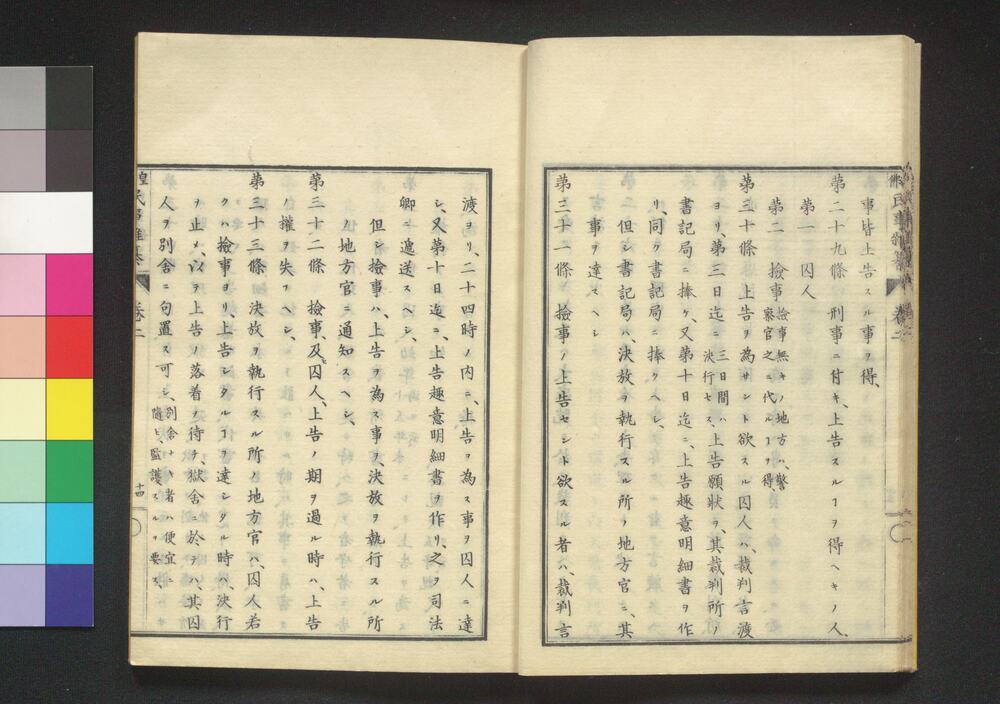 事皆上告スル事ヲ得、
第二十九條 刑事ニ付キ、上告スルヿヲ得ヘキノ人、
第一 囚人
第二 撿事 撿事無キノ地方ハ、警
察官之ニ代ルヿヲ得
第三十條 上告ヲ為サント欲スル囚人ハ、裁判言渡
ヨリ、第三日迄ニ 三日間ハ
決行セス、 上告願狀ヲ、其裁判所ノ
書記局ニ捧ケ、又第十日迄ニ、上告趣意明細書ヲ作
リ、同ク書記局ニ捧クヘシ、
但シ書記局ハ、決放ヲ執行スル所ノ地方官ニ、其
事ヲ達スヘシ
第三十一條 撿事ノ上告セント欲スル者ハ、裁判言
渡ヨリ、二十四時ノ内ニ、上告ヲ為ス事ヲ囚人ニ達
シ、又第十日迄ニ、上告趣意明細書ヲ作リ、之ヲ司法
卿ニ遞送スヘシ、
但シ撿事ハ、上告ヲ為ス事ヲ、決放ヲ執行スル所
ノ地方官ニ通知スヘシ、
第三十二條 撿事、及ヒ囚人、上告ノ期ヲ過ル時ハ、上告
ノ權ヲ失フヘシ、
第三十三條 決放ヲ執行スル所ノ地方官ハ、囚人若
クハ撿事ヨリ、上告シタルヿヲ達シタル時ハ、決行
ヲ止メ、以テ上告ノ落着ヲ待チ、獄舍ニ於テハ、其囚
人ヲ別舍ニ勾置ス可シ、 別舍ナキ者ハ便宜ニ
隨ヒ、監護スルヿヲ要ス、
卷二
十四